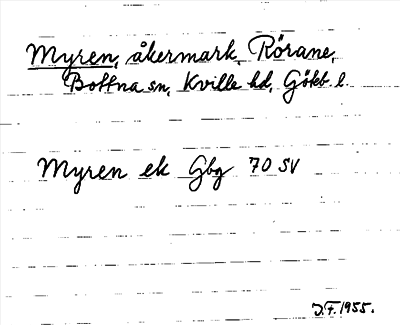 Myren, åkermark, Rörane,
Bottna sn, Kville hd, Göteb. l.
Myren ek Gbg 70 SV
J.F. 1955.